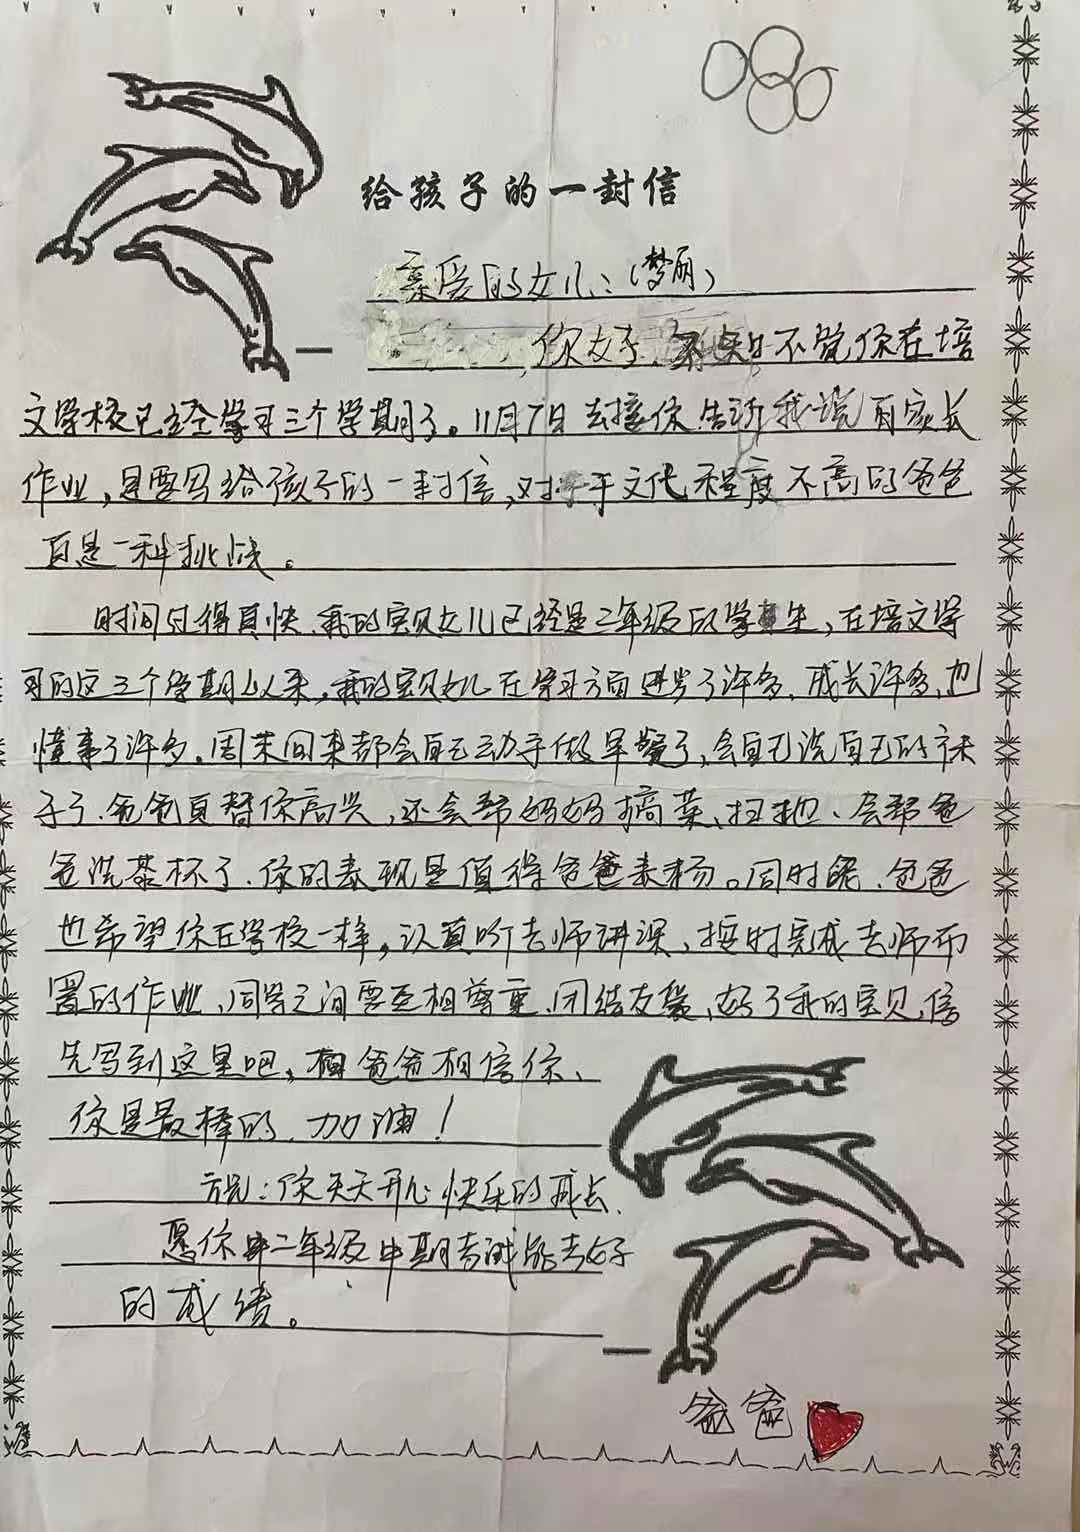 给孩子的一封信
亲爱的女儿:(梦丽)
你好、不知不觉你在培
文学校已经学习三个学期了。11月7日去接你告诉我说有家长
作业,是要写给孩子的一封信,对于文化程度不高的爸爸
真是一种挑战。
时间过得真快、我的宝贝女儿已经是二年级的学生,在培文学
习的这三个学期以来,我的宝贝女儿在学习方面进步了许多、成长许多、也
懂事了许多。周末回来都会自己动手做早餐了,会自己洗自己的袜
子了、爸爸真替你高兴,还会帮妈妈摘菜、扫地、会帮爸
爸洗茶杯了、你的表现是值得爸爸表扬。同时呢、爸爸
也希望你在学校一样,认真听老师讲课、按时完成老师布
置的作业、同学之间要互相尊重、团结友爱、好了我的宝贝,信
先写到这里吧,爸爸相信你、
你是最棒的、加油!
祝:你天天开心快乐的成长、
愿你二年级中期考试能考好
的成绩。
爸爸